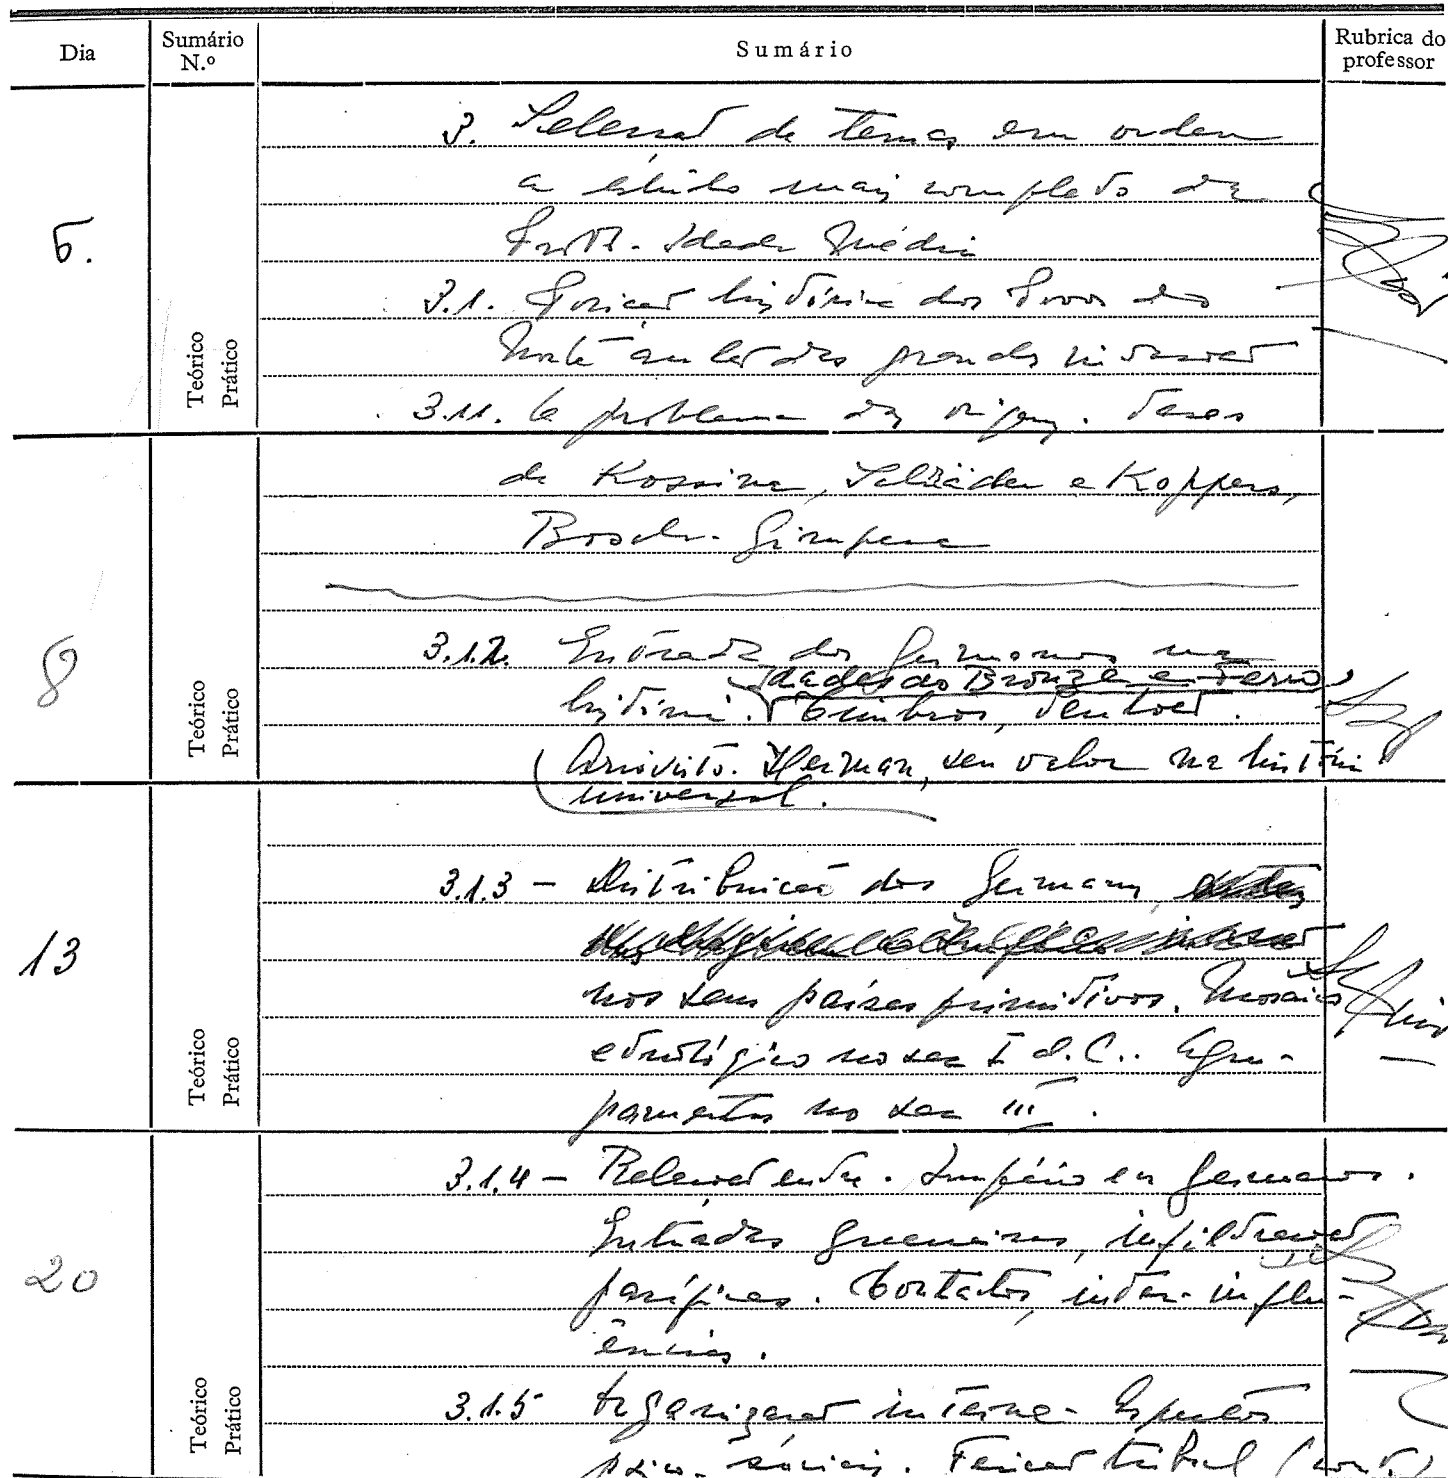 Dia
Sumário N.º
Sumário
Rubrica do professor
3. Selecção de temas em ordem
a estudo mais completo da
Idade Média
5.
3.1. Posição histórica dos Povos do
Norte antes das grandes invasões
3.1.1. O problema das origens. Teses
Teórico
Prático
de Kossina, Schräder e Koppers,
Bosch-Gimpera
3.1.2. Entrada dos Germanos na
Idades do Bronze e Ferro
história. Cimbros, Teutões.
8
Ariovisto. Herman, seu valor na história
universal.
Teórico
Prático
3.1.3 - Distribuição dos Germanos,
13
nos seus países primitivos. Mosaico
etnológico no sec I d.C.. Agru-
pamentos no sec III.
Teórico
Prático
3.1.4 - Relações entre Império e os germanos.
Entradas guerreiras, infiltrações
20
pacíficas. Contactos, inter-influ-
ências.
3.1.5 Organização interna - Aspectos
sociais. Feição tribal (cont.)
Teórico
Prático